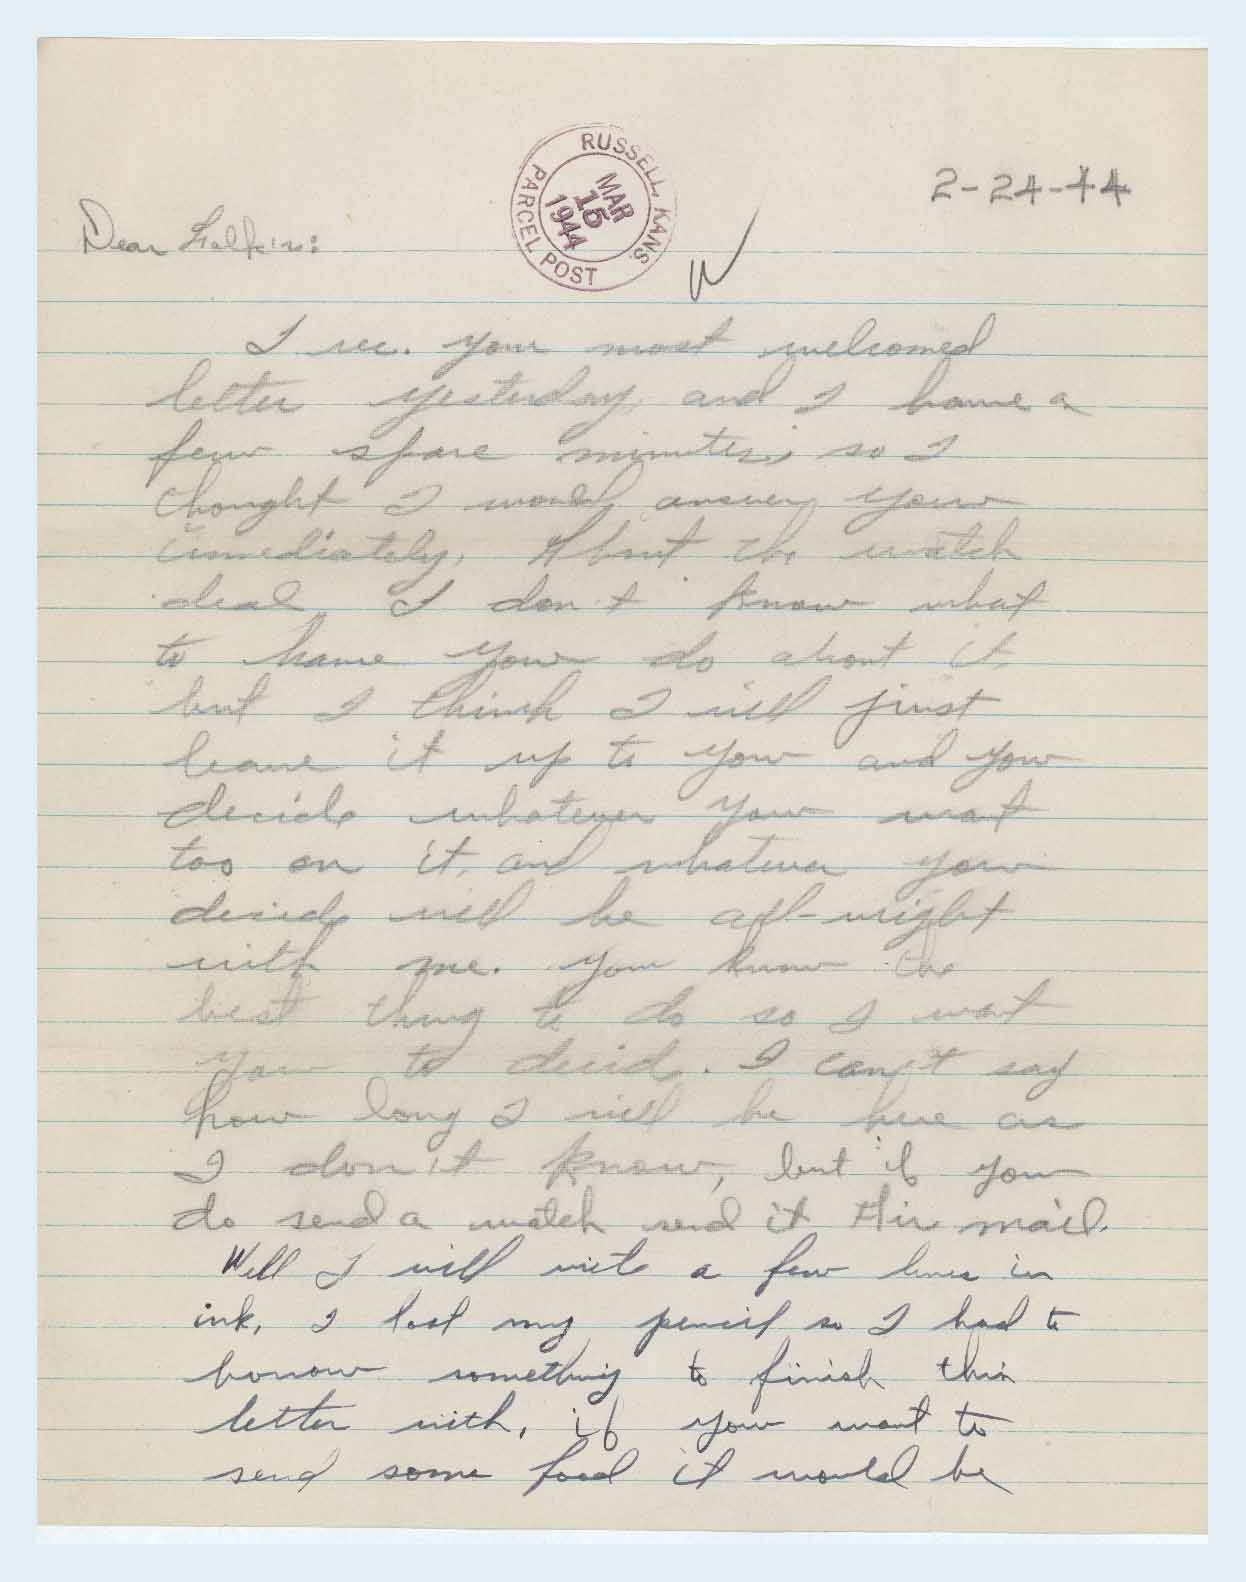 2-24-44
RUSSELL, KANS.
MAR
15
1944
PARCEL POST
Dear Folks:
I rec. your most welcomed
letter yesterday, and I have a
few spare minutes, so I
thought I would answer your
immediately. About the watch
deal, I don't know what
to have you do about it,
but I think I will just
leave it up to you and you
decide whatever you want
too on it, and whatever you
decide will be all-wright
with me. You know the
best thing to do so I want
you to decide. I can't say
how long I will be here as
I don't know, but if you
do send a watch send it Air mail.
Well I will write a few lines in
ink, I lost my pencil so I had to
borrow something to finish this
letter with, if you want to
send some food it would be